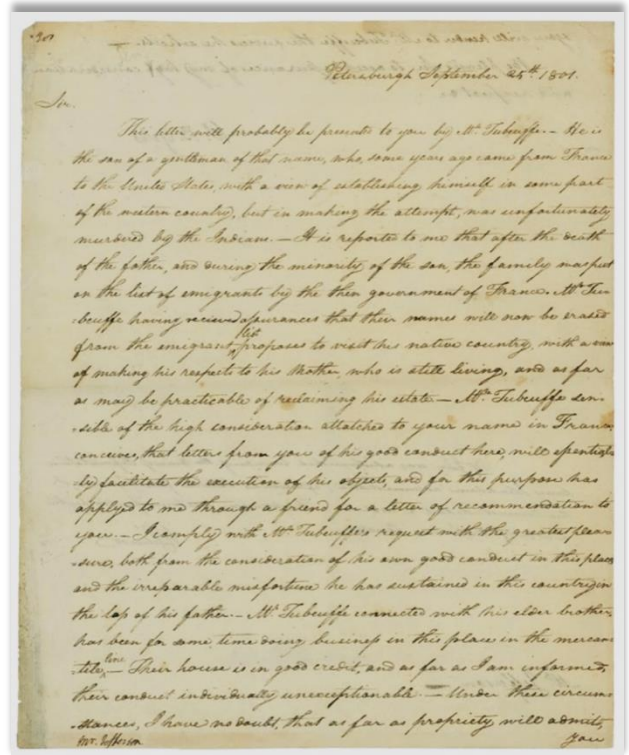 Petersburgh September 25th. 1801.
Sir.
This letter will probably be presente to you by Mr. Tubeuffe.— He is
the son of a gentleman of that name, who, some years ago came from France
to the United States, with a view of establishing himself in some part
of the western country, but in making the attempt, was unfortunately
murdered by the Indians.— It is reported to me that after the death
of the father, and during the minority of the son, the family was put
on the list of emigrants by the then government of France. Mr. Tu-
beuffe having recieved assurances that their names will now be erased
list
from the emigrant, proposes to visit his native country, with a view
of making his respects to his Mother who is still living, and as far
as may be practicable of reclaiming his estate— Mr. Tubeuffe sen-
-sible of the high consideration attached to your name in France,
conceives, that letters from you of his good conduct here, will essential-
ly facilitate the execution of his objects, and for this purpose has
applyed to me through a friend for a letter of recommendation to
you.— I comply with Mr. Tubeuffe's request with the greatest plea-
-sure, both from the consideration of his own good conduct in this place
and the irreparable misfortune he has sustained in this country in
the loss of his father.— Mr. Tubeuffe connected with his elder brother,
has been for some time doing business in this place in the mercan-
line
-tile,— Their house is in good credit, and as far as I am informed,
their conduct individually unexceptionable.— Under these circum-
-stances, I have no doubt, that as far as propriety will admit,
Mr. Jefferson
you